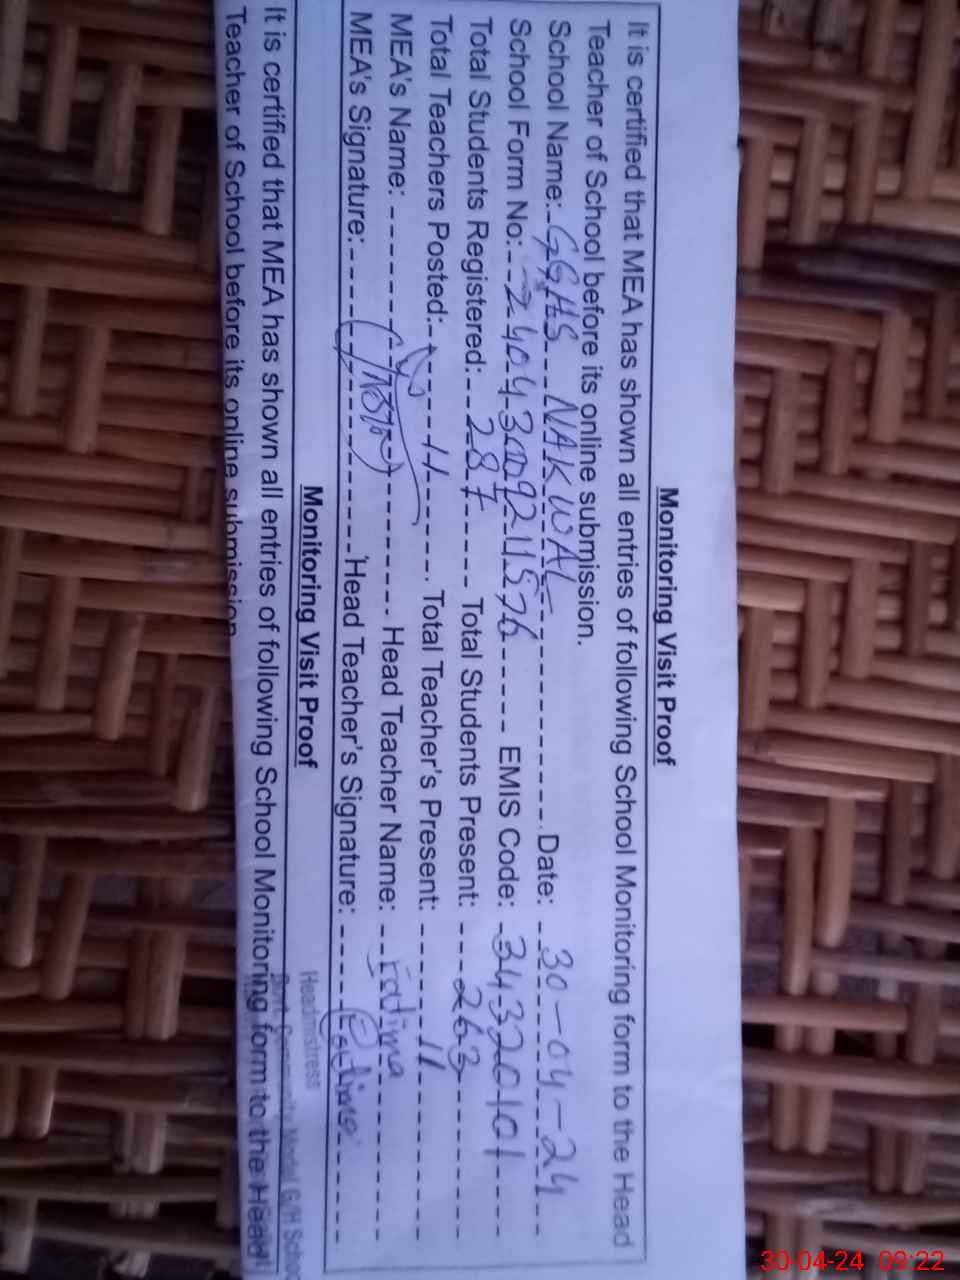 Monitoring Visit Proof
It is certified that MEA has shown all entries of following School Monitoring form to the Head
Teacher of School before its online submission.
School Name: GGHS NAKWAL Date: 30-04-24
School Form No: EMIS Code: 34320101
Total Students Registered: 287 Total Students Present: 263
Total Teachers Posted: 11 Total Teacher's Present: 11
MEA's Name: Head Teacher Name: Fatima
MEA's Signature: Head Teacher's Signature: Fatima
Headmistress
Govt. Community Model G/H School
Monitoring Visit Proof
It is certified that MEA has shown all entries of following School Monitoring form to the Head
Teacher of School before its online submission
30-04-24 09:22